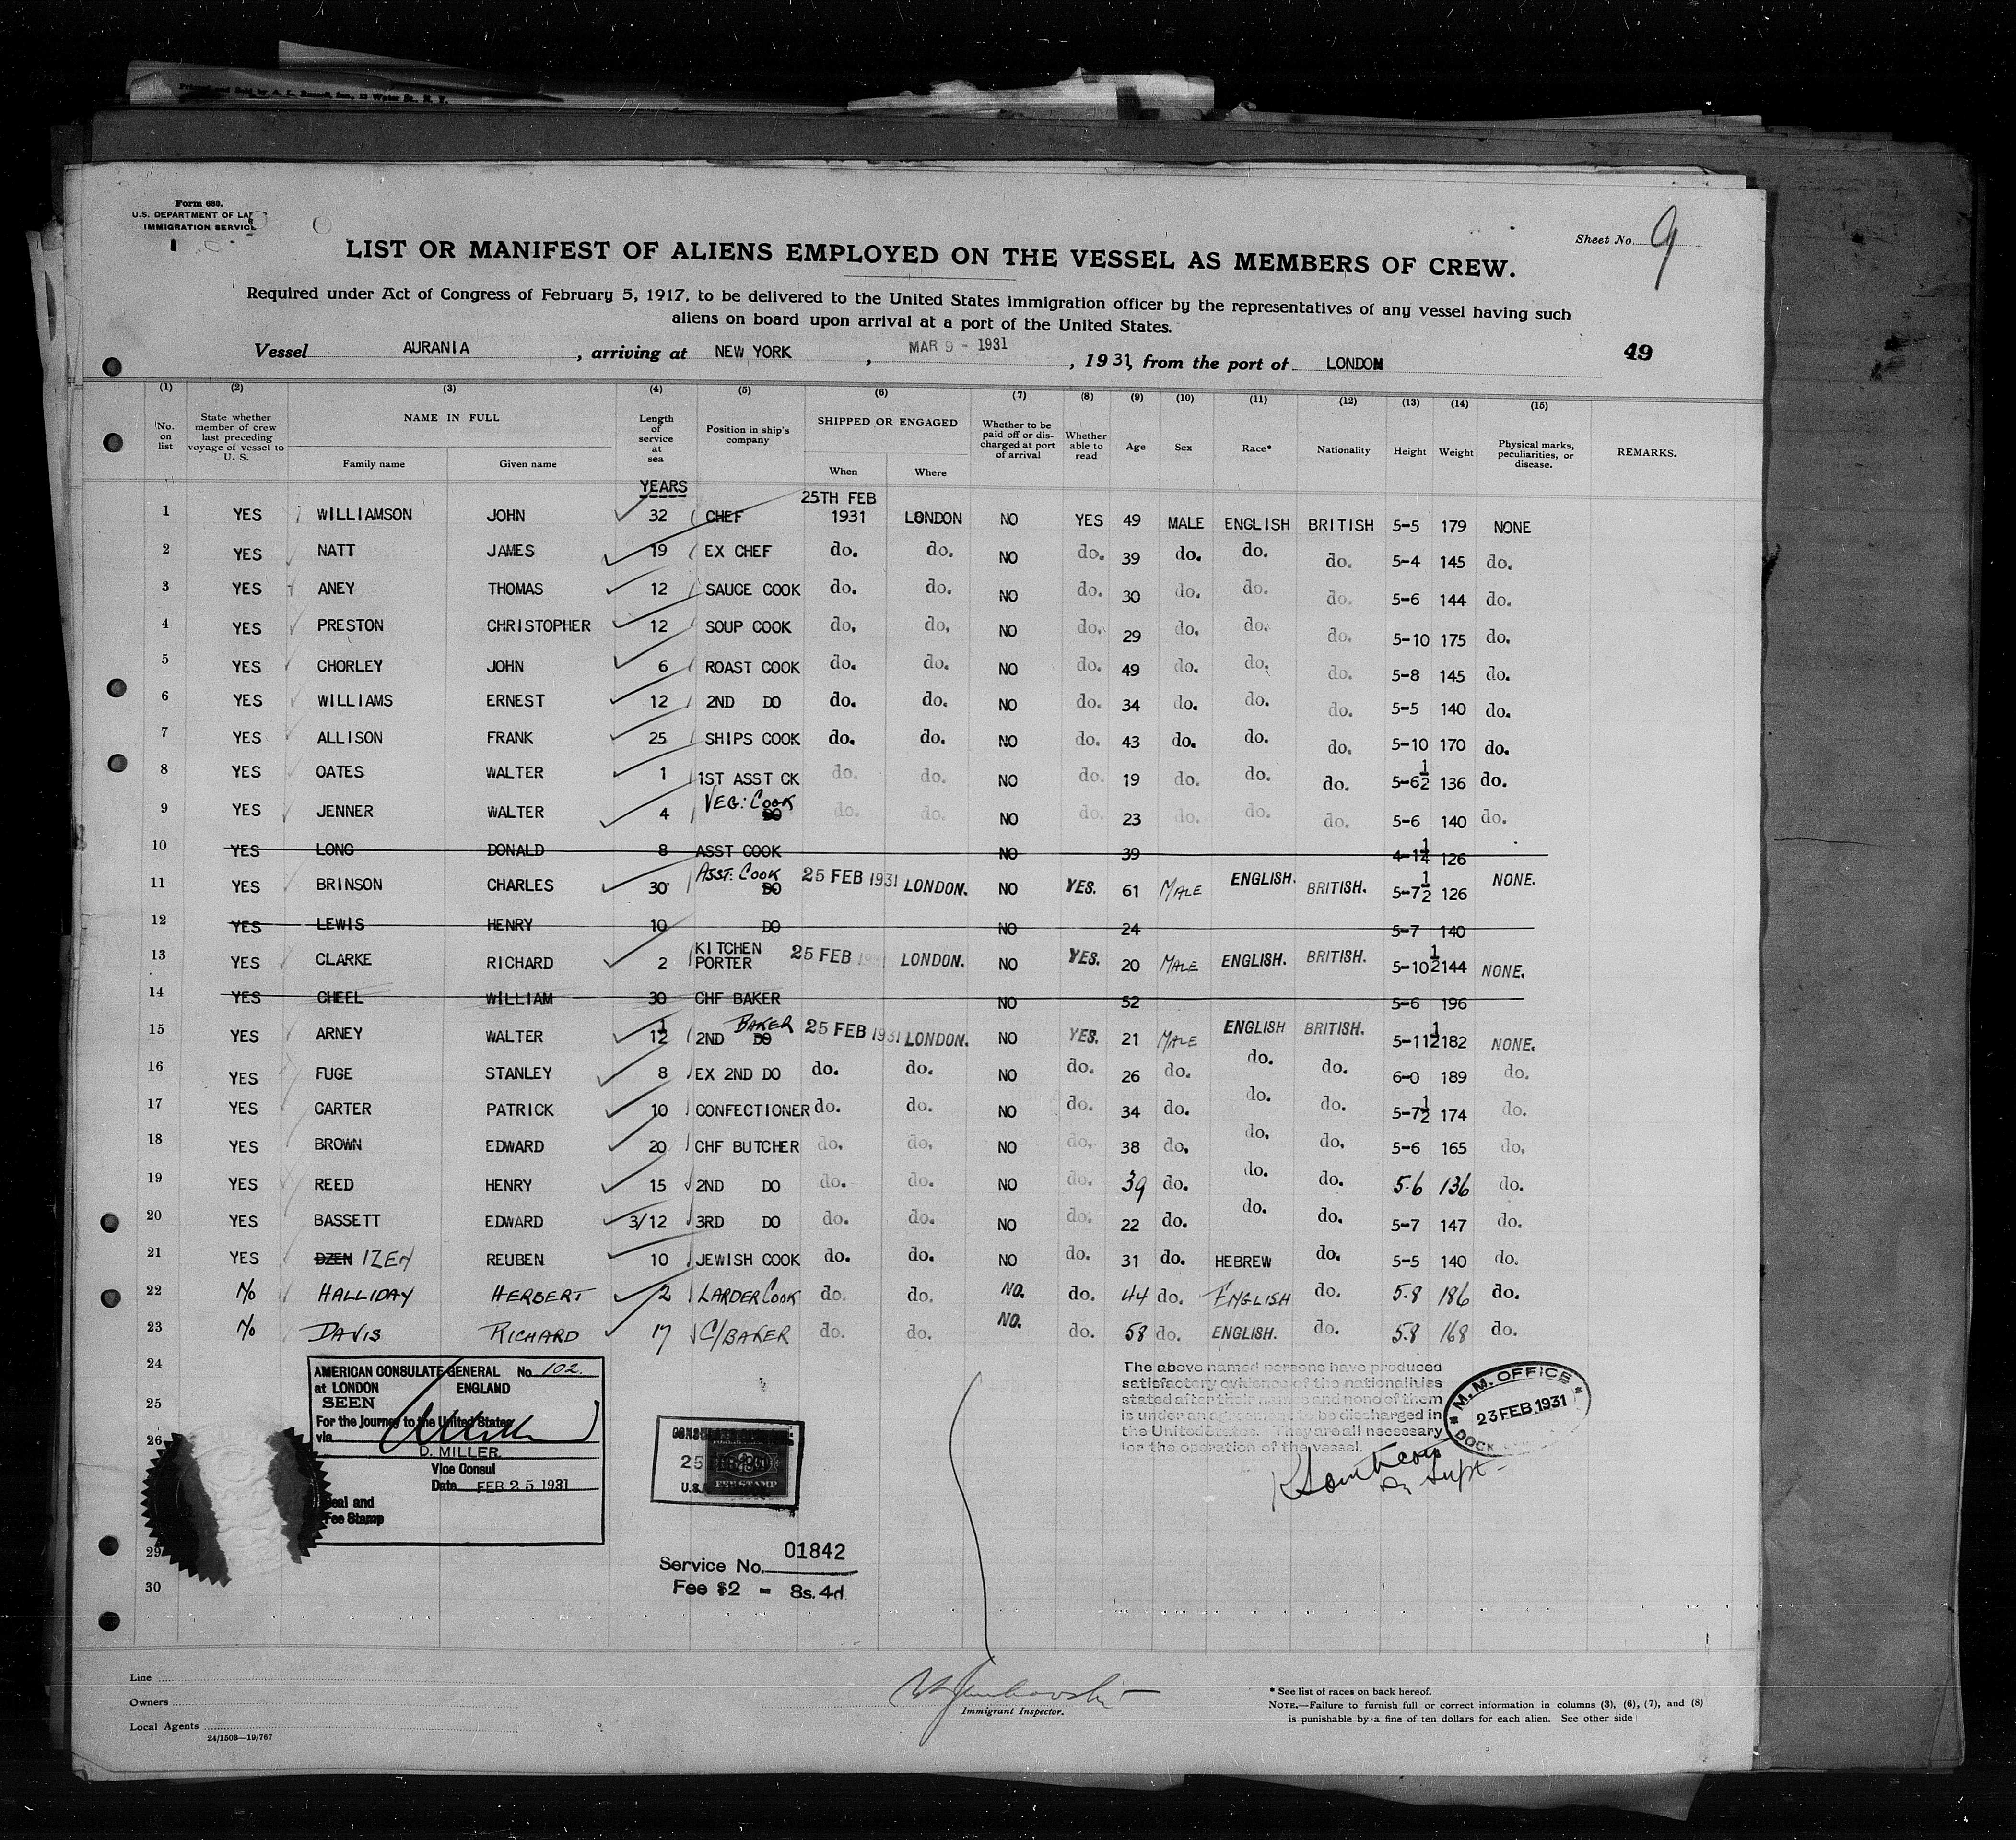 Printed and Sold by A. L. Russell, Inc., 12 Water St., N. Y.
Form 680.
U.S. DEPARTMENT OF
IMMIGRATION SERVICE
Sheet No. 9
LIST OR MANIFEST OF ALIENS EMPLOYED ON THE VESSEL AS MEMBERS OF CREW.
Required under Act of Congress of February 5, 1917, to be delivered to the United States immigration officer by the representatives of any vessel having such
aliens on board upon arrival at a port of the United States.
Vessel AURANIA, arriving at NEW YORK, MAR 9 - 1931, 1931, from the port of LONDON
49
(1) (2) (3) (4) (5) (6) (7) (8) (9) (10) (11) (12) (13) (14) (15)
No. on list State whether member of crew last preceding voyage of vessel to U. S. NAME IN FULL Family name Given name Length of service at sea Position in ship's company SHIPPED OR ENGAGED When Where Whether to be paid off or discharged at port of arrival Whether able to read Age Sex Race* Nationality Height Weight Physical marks, peculiarities, or disease. REMARKS.
YEARS 25TH FEB
1 YES WILLIAMSON JOHN 32 CHEF 1931 LONDON NO YES 49 MALE ENGLISH BRITISH 5-5 179 NONE
2 YES NATT JAMES 19 EX CHEF do. do. NO do. 39 do. do. do. 5-4 145 do.
3 YES ANEY THOMAS 12 SAUCE COOK do. do. NO do. 30 do. do. do. 5-6 144 do.
4 YES PRESTON CHRISTOPHER 12 SOUP COOK do. do. NO do. 29 do. do. do. 5-10 175 do.
5 YES CHORLEY JOHN 6 ROAST COOK do. do. NO do. 49 do. do. do. 5-8 145 do.
6 YES WILLIAMS ERNEST 12 2ND DO do. do. NO do. 34 do. do. do. 5-5 140 do.
7 YES ALLISON FRANK 25 SHIPS COOK do. do. NO do. 43 do. do. do. 5-10 170 do.
8 YES OATES WALTER 1 1ST ASST CK do. do. NO do. 19 do. do. do. 5-6 1/2 136 do.
9 YES JENNER WALTER 4 VEG: COOK DO do. do. NO do. 23 do. do. do. 5-6 140 do.
10 YES LONG DONALD 8 ASST COOK NO 39 4-1 1/4 126
11 YES BRINSON CHARLES 30 ASST: COOK DO 25 FEB 1931 LONDON. NO YES. 61 MALE ENGLISH. BRITISH. 5-7 1/2 126 NONE.
12 YES LEWIS HENRY 10 DO NO 24 5-7 140
13 YES CLARKE RICHARD 2 KITCHEN PORTER 25 FEB 1931 LONDON. NO YES. 20 MALE ENGLISH. BRITISH. 5-10 1/2 144 NONE.
14 YES CHEEL WILLIAM 30 CHF BAKER NO 52 5-6 196
15 YES ARNEY WALTER 1/12 2ND BAKER DO 25 FEB 1931 LONDON. NO YES. 21 MALE ENGLISH BRITISH. 5-11 1/2 182 NONE.
16 YES FUGE STANLEY 8 EX 2ND DO do. do. NO do. 26 do. do. do. 6-0 189 do.
17 YES CARTER PATRICK 10 CONFECTIONER do. do. NO do. 34 do. do. do. 5-7 1/2 174 do.
18 YES BROWN EDWARD 20 CHF BUTCHER do. do. NO do. 38 do. do. do. 5-6 165 do.
19 YES REED HENRY 15 2ND DO do. do. NO do. 39 do. do. do. 5.6 136 do.
20 YES BASSETT EDWARD 3/12 3RD DO do. do. NO do. 22 do. do. do. 5-7 147 do.
21 YES DZEN IZEN REUBEN 10 JEWISH COOK do. do. NO do. 31 do. HEBREW do. 5-5 140 do.
22 No HALLIDAY HERBERT 2 LARDER COOK do. do. NO. do. 44 do. ENGLISH do. 5.8 186 do.
23 No DAVIS RICHARD 17 C/BAKER do. do. NO. do. 58 do. ENGLISH. do. 5.8 168 do.
24
25
26
29
30
AMERICAN CONSULATE GENERAL No. 102.
at LONDON ENGLAND
SEEN
For the journey to the United States
via
D. MILLER.
Vice Consul
Date FEB 25 1931
Seal and
Fee Stamp
25
U.S.
FEE STAMP
Service No. 01842
Fee $2 = 8s. 4d.
The above named persons have produced
satisfactory evidence of the nationalities
stated after their names and none of them
is under an agreement to be discharged in
the United States. They are all necessary
for the operation of the vessel.
M. M. OFFICE
23 FEB 1931
DOCK
Supt
Immigrant Inspector.
Line
Owners
Local Agents
24/1503—19/767
* See list of races on back hereof.
NOTE.—Failure to furnish full or correct information in columns (3), (6), (7), and (8)
is punishable by a fine of ten dollars for each alien. See other side